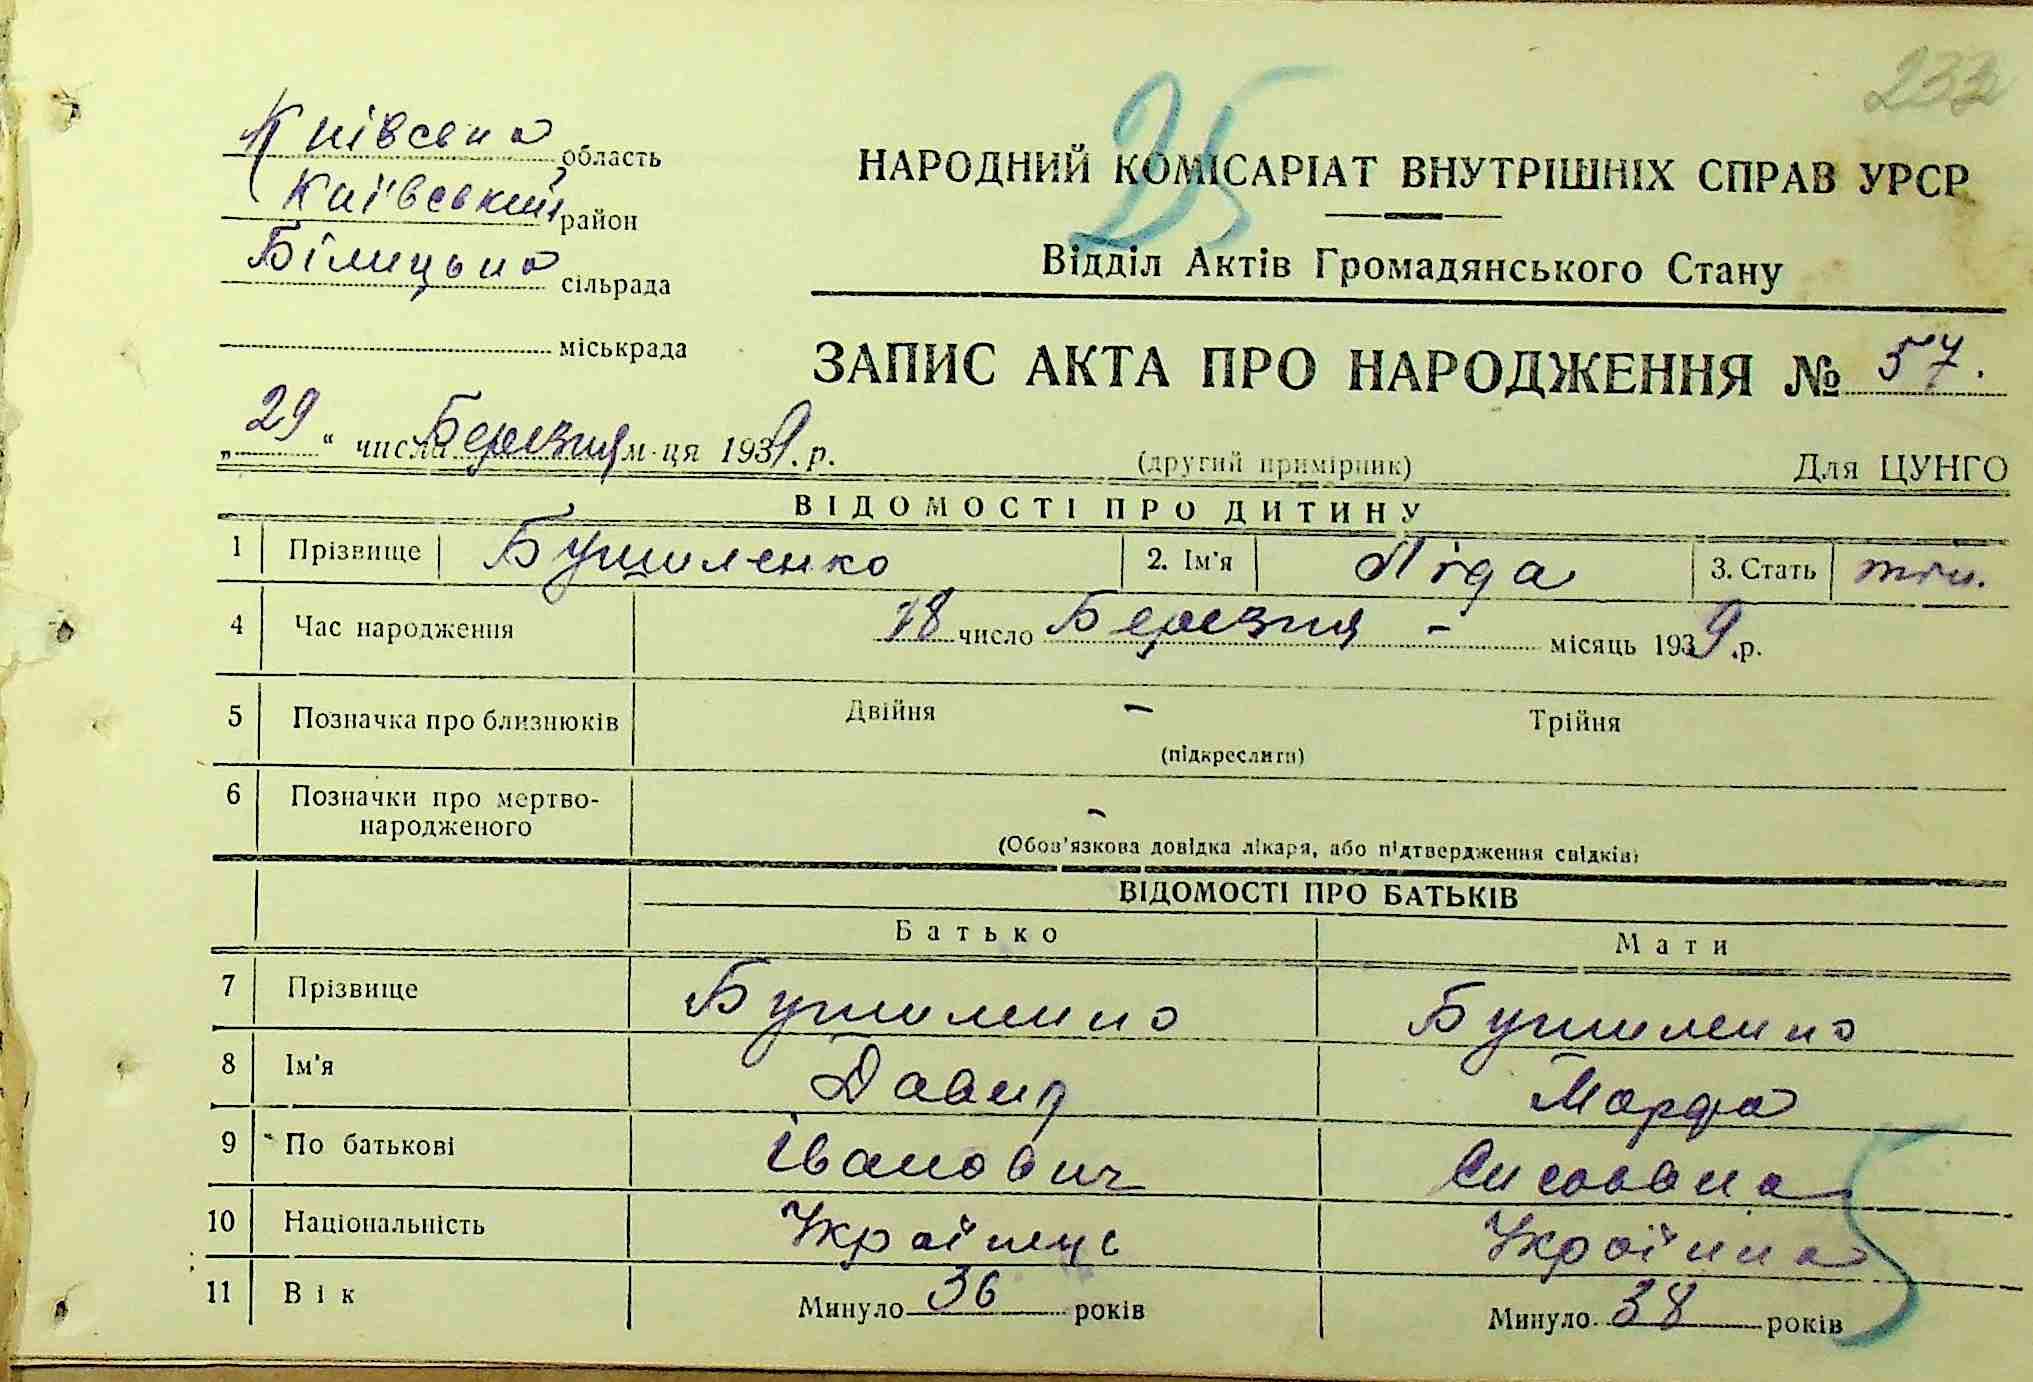 233
25
Київська область
Київський район
Білицька сільрада
міськрада
НАРОДНИЙ КОМІСАРІАТ ВНУТРІШНІХ СПРАВ УРСР
Відділ Актів Громадянського Стану
ЗАПИС АКТА ПРО НАРОДЖЕННЯ № 57.
„29“ числа Березня м-ця 1939.р.
(другий примірник) Для ЦУНГО
ВІДОМОСТІ ПРО ДИТИНУ
1 Прізвище Бушиленко 2. Ім'я Ліда 3. Стать жін.
4 Час народження 18 число Березня - місяць 1939.р.
5 Позначка про близнюків Двійня - Трійня
(підкреслити)
6 Позначки про мертво-
народженого -
(Обов'язкова довідка лікаря, або підтвердження свідків)
ВІДОМОСТІ ПРО БАТЬКІВ
Батько Мати
7 Прізвище Бушиленко Бушиленко
8 Ім'я Давид Марфа
9 По батькові Іванович Сисоєвна
10 Національність Українець Українка
11 Вік Минуло 36 років Минуло 38 років
5